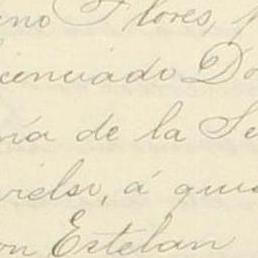 ino Flores, p
icenciado Do
nía de la Se
vielsr, á quie
on Esteban